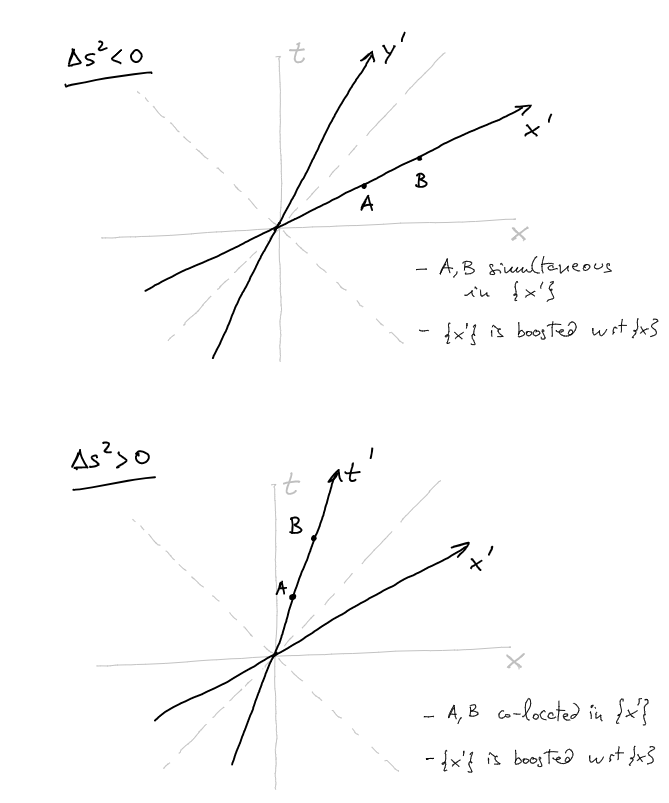 Δs²<0
t
y'
x'
A
B
x
- A,B simultaneous
in {x'}
- {x'} is boosted wrt {x}
Δs²>0
t
t'
B
A
x'
x
- A,B co-located in {x'}
- {x'} is boosted wrt {x}